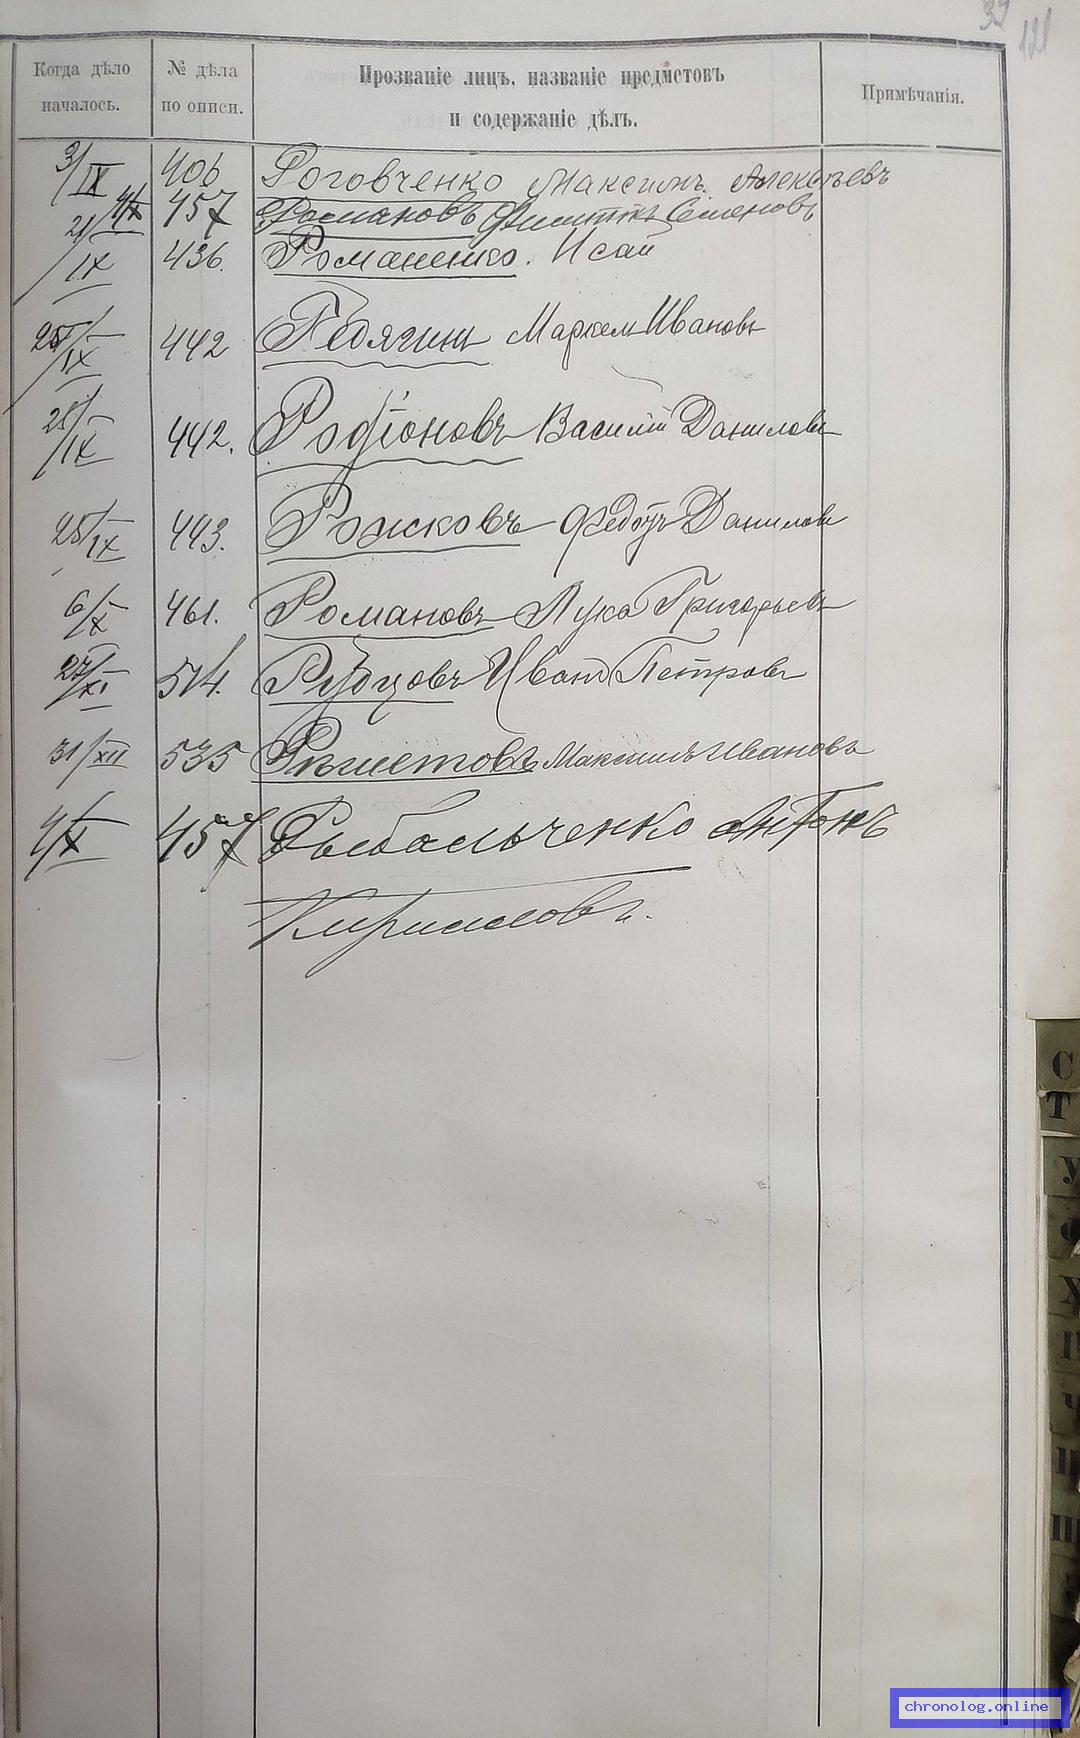 39 121
Когда дѣло началось.
№ дѣла по описи.
Прозваніе лицъ, названіе предметовъ и содержаніе дѣлъ.
Примѣчанія.
3/IX 406 Роговченко Максимъ Алексѣевъ
4/X 457 Романовъ Филиппъ Семеновъ
21/IX 436. Романенко. Исай
25/IX 442 Маркел Ивановъ
25/IX 442. Родіоновъ Василій Даниловъ
25/IX 443. Рожковъ Федотъ Данилов
6/X 461. Романовъ Лука Григорьевъ
27/XI 514. Рубцовъ Иванъ Петровъ
31/XII 535 Рѣшетовъ Максимъ Ивановъ
4/X 457 Рыбальченко Антонъ
Кирилловъ.
С
Т
У
Ф
Х
Ч
Ш
chronolog.online